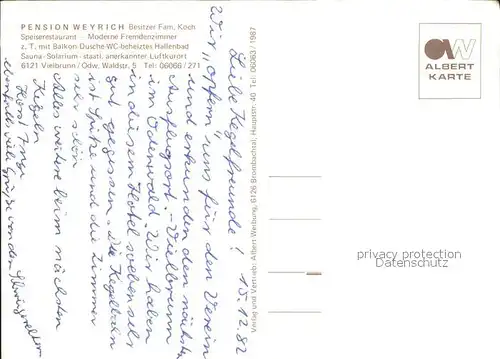 PENSION WEYRICH Besitzer Fam. Koch
Speiserestaurant - Moderne Fremdenzimmer
z. T. mit Balkon-Dusche-WC-beheiztes Hallenbad
Sauna-Solarium-staatl. anerkannter Luftkurort
6121 Vielbrunn/Odw. Waldstr. 5 Tel: 06066/271
15.12.82
Liebe Kegelfreunde!
Wir "opfern" uns für den Verein
und erkunden den nächsten
Ausflugsort. - Vielbrunn
im Odenwald. Wir haben
in diesem Hotel soeben sehr
gut gegessen. Die Kegelbahn
ist Spitze und die Zimmer
sehr schön
Alles weitere beim nächsten
Kegeln
Horst Inge
ebenfalls viele Grüße von den
Verlag und Vertrieb: Albert Werbung, 6126 Brombachtal, Hauptstr. 40 Tel: 06063/1987
ALBERT
KARTE
privacy protection
Datenschutz